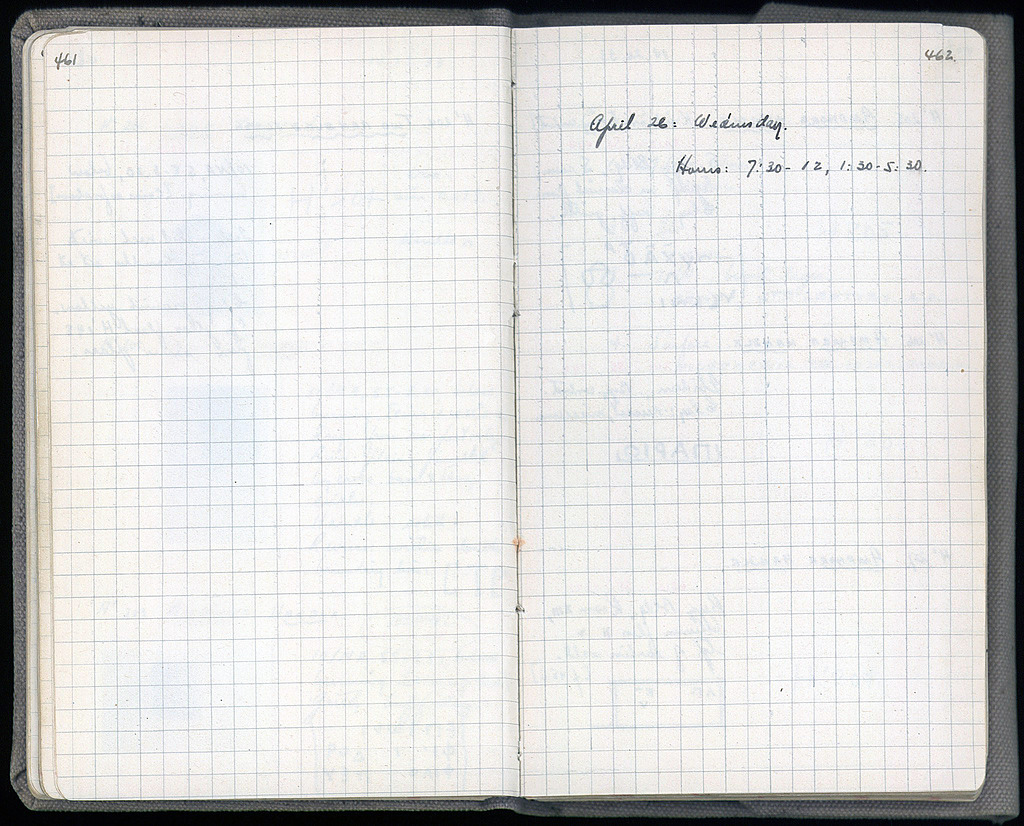 461
462.
April 26: Wednesday.
Hours: 7:30-12, 1:30-5:30.